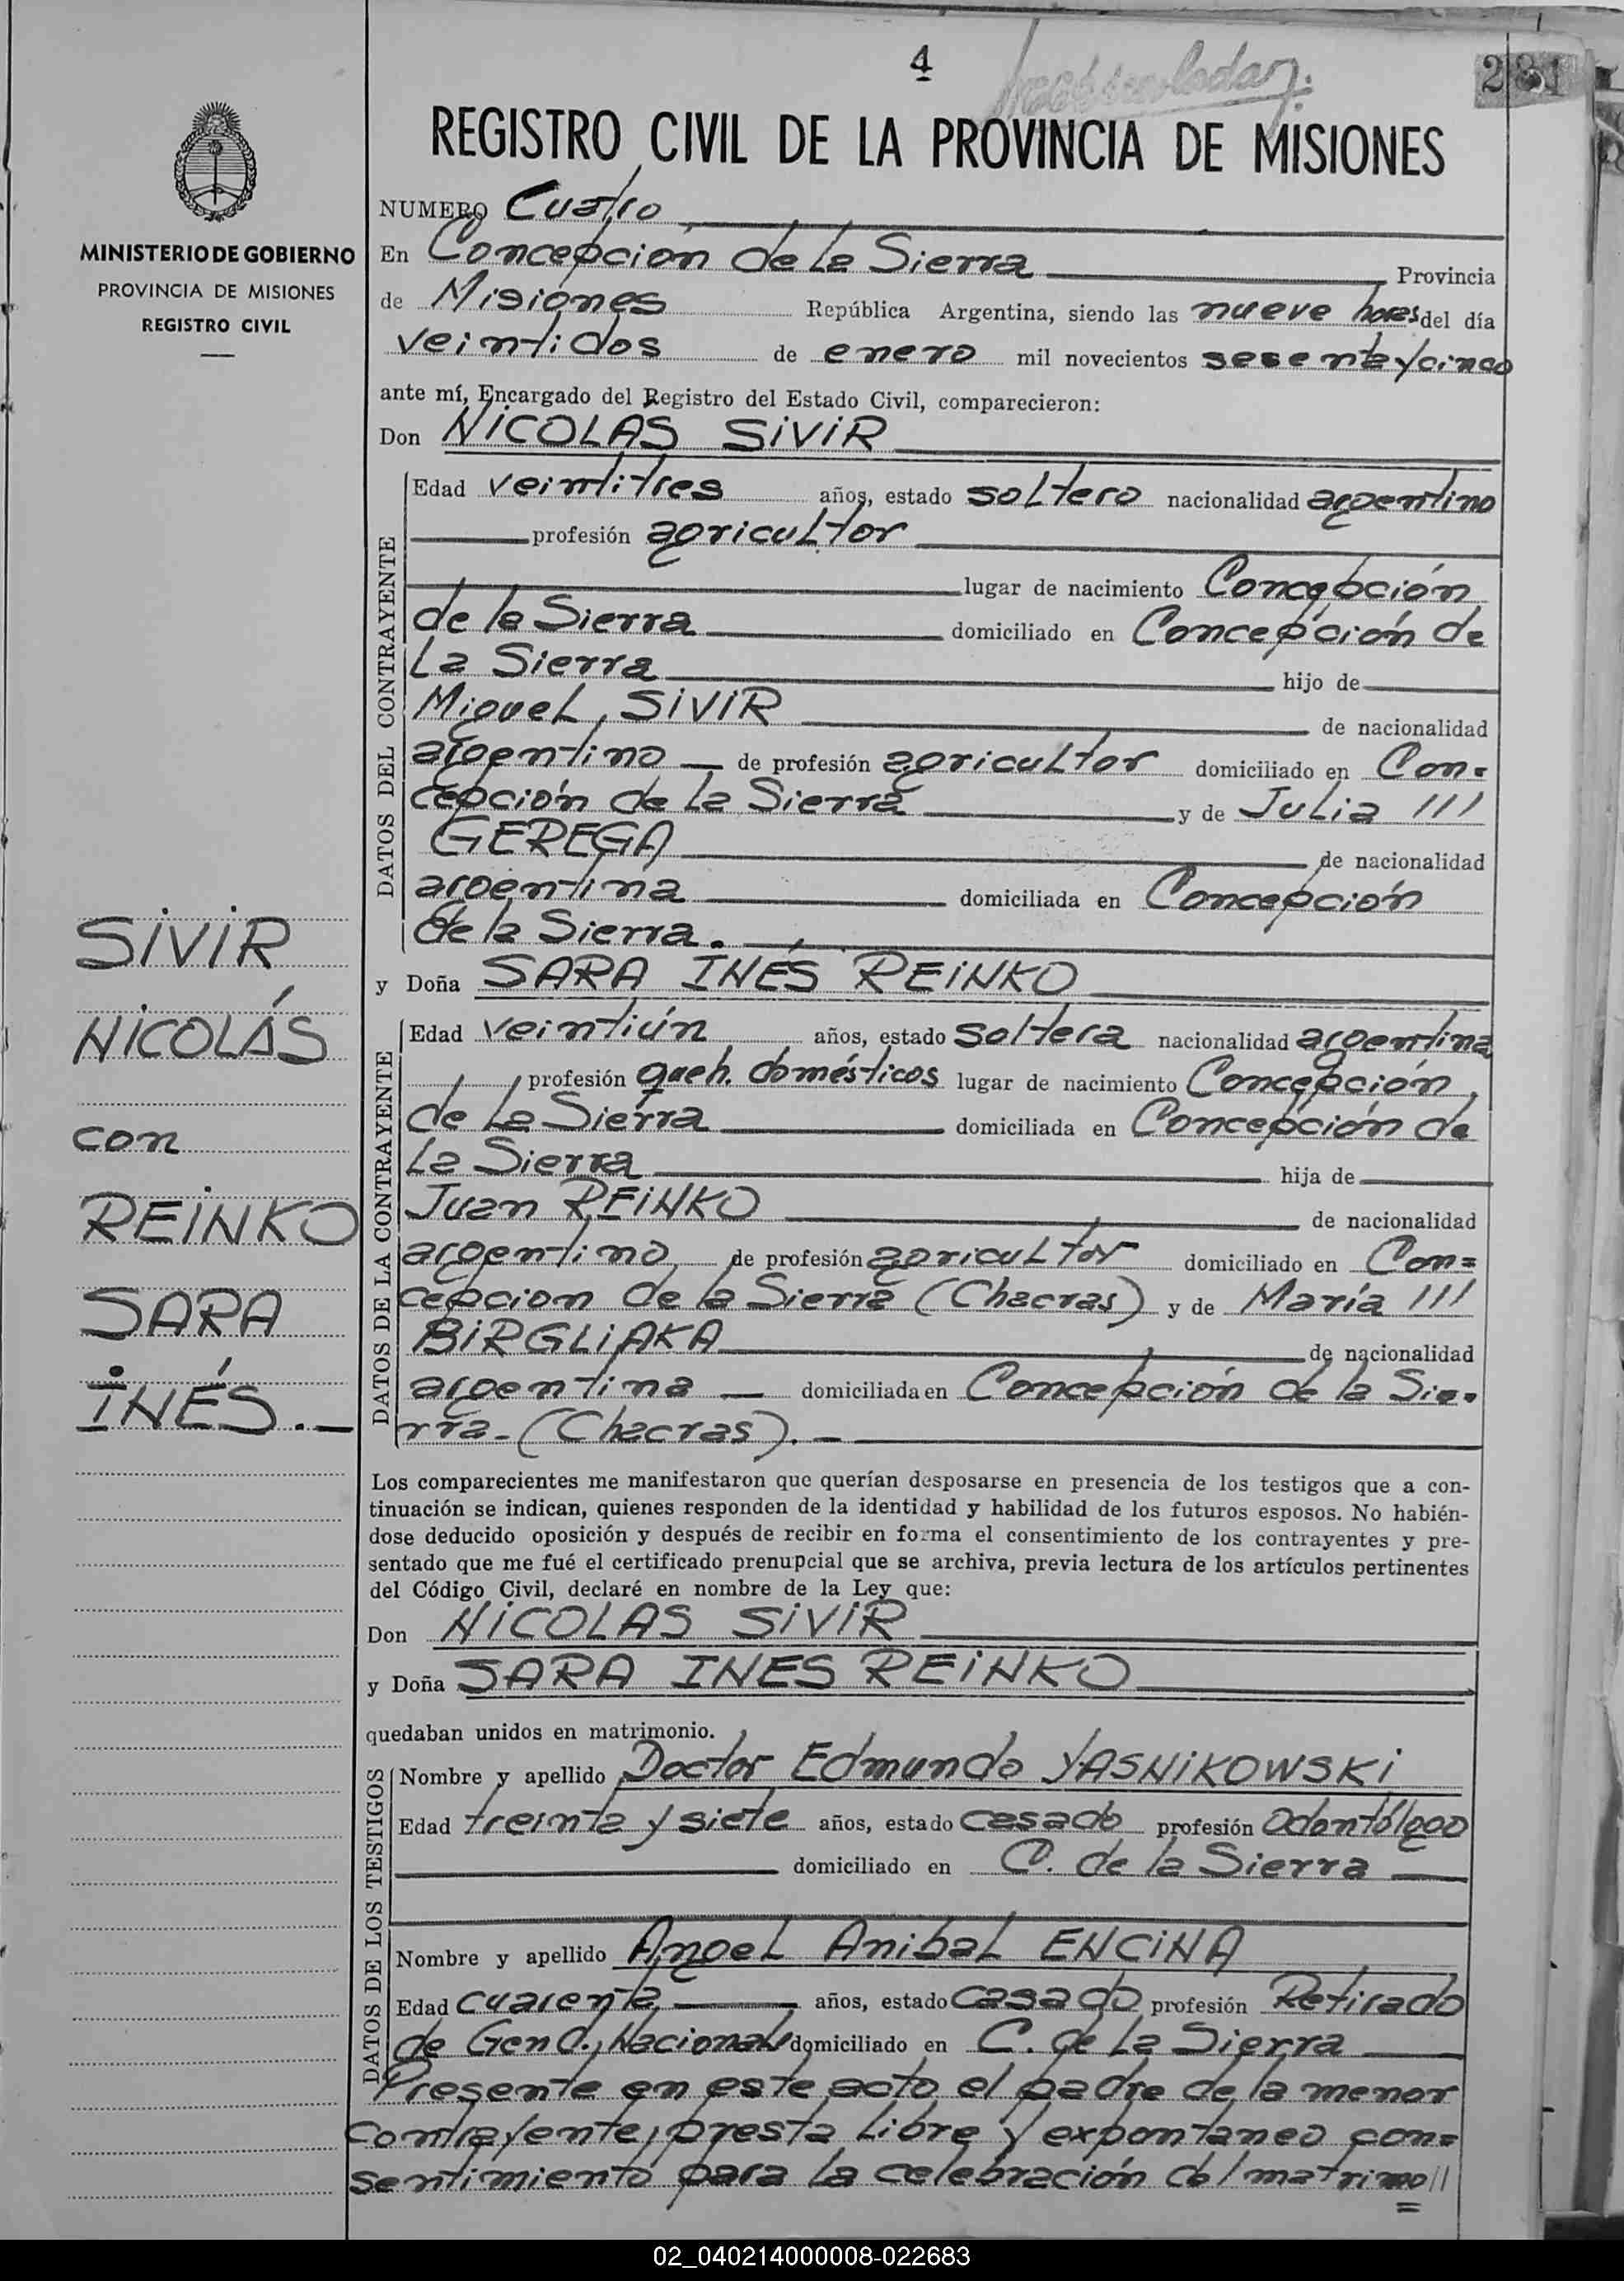 4
231
REGISTRO CIVIL DE LA PROVINCIA DE MISIONES
MINISTERIO DE GOBIERNO
PROVINCIA DE MISIONES
REGISTRO CIVIL
NUMERO Cuatro
En Concepción de la Sierra Provincia
de Misiones República Argentina, siendo las nueve horas del día
veintidos de enero mil novecientos sesenta y cinco
ante mí, Encargado del Registro del Estado Civil, comparecieron:
Don NICOLAS SIVIR
DATOS DEL CONTRAYENTE
Edad veintitres años, estado soltero nacionalidad argentino
profesión agricultor
lugar de nacimiento Concepción
de la Sierra domiciliado en Concepción de
La Sierra hijo de
Miguel SIVIR de nacionalidad
argentino de profesión agricultor domiciliado en Con=
cepción de la Sierra y de Julia ///
GEREGA de nacionalidad
argentina domiciliada en Concepción
de la Sierra.
SIVIR
NICOLÁS
con
REINKO
SARA
INÉS.—
y Doña SARA INÉS REINKO
DATOS DE LA CONTRAYENTE
Edad veintiún años, estado soltera nacionalidad argentina
profesión queh. domésticos lugar de nacimiento Concepción
de La Sierra domiciliada en Concepción de
La Sierra hija de
Juan REINKO de nacionalidad
argentino de profesión agricultor domiciliado en Con=
cepcion de la Sierra (Chacras) y de María ///
BIRGLIAKA de nacionalidad
argentina — domiciliada en Concepción de la Sie=
rra-(Chacras).—
Los comparecientes me manifestaron que querían desposarse en presencia de los testigos que a con-
tinuación se indican, quienes responden de la identidad y habilidad de los futuros esposos. No habién-
dose deducido oposición y después de recibir en forma el consentimiento de los contrayentes y pre-
sentado que me fué el certificado prenupcial que se archiva, previa lectura de los artículos pertinentes
del Código Civil, declaré en nombre de la Ley que:
Don NICOLAS SIVIR
y Doña SARA INES REINKO
quedaban unidos en matrimonio.
DATOS DE LOS TESTIGOS
Nombre y apellido Doctor Edmundo YASNIKOWSKI
Edad treinta y siete años, estado casado profesión Odontólogo
domiciliado en C. de la Sierra
Nombre y apellido Angel Anibal ENCINA
Edad cuarenta años, estado casado profesión Retirado
de Gend. Nacional domiciliado en C. de La Sierra
Presente en este acto el padre de la menor
contrayente, presta libre y expontaneo con=
sentimiento para la celebración del matrimo//
02_040214000008-022683